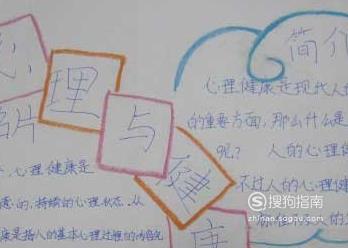 心
理
与
健
康
名片
简介
心理健康是现代人
的重要方面，那么什么是
呢？ 人的心理健
不过人的心理健
心理健康是
的，持续的心理状态，从
康是指人的基本心理过程的内容完
搜狗指南
zhinan.sogou.com